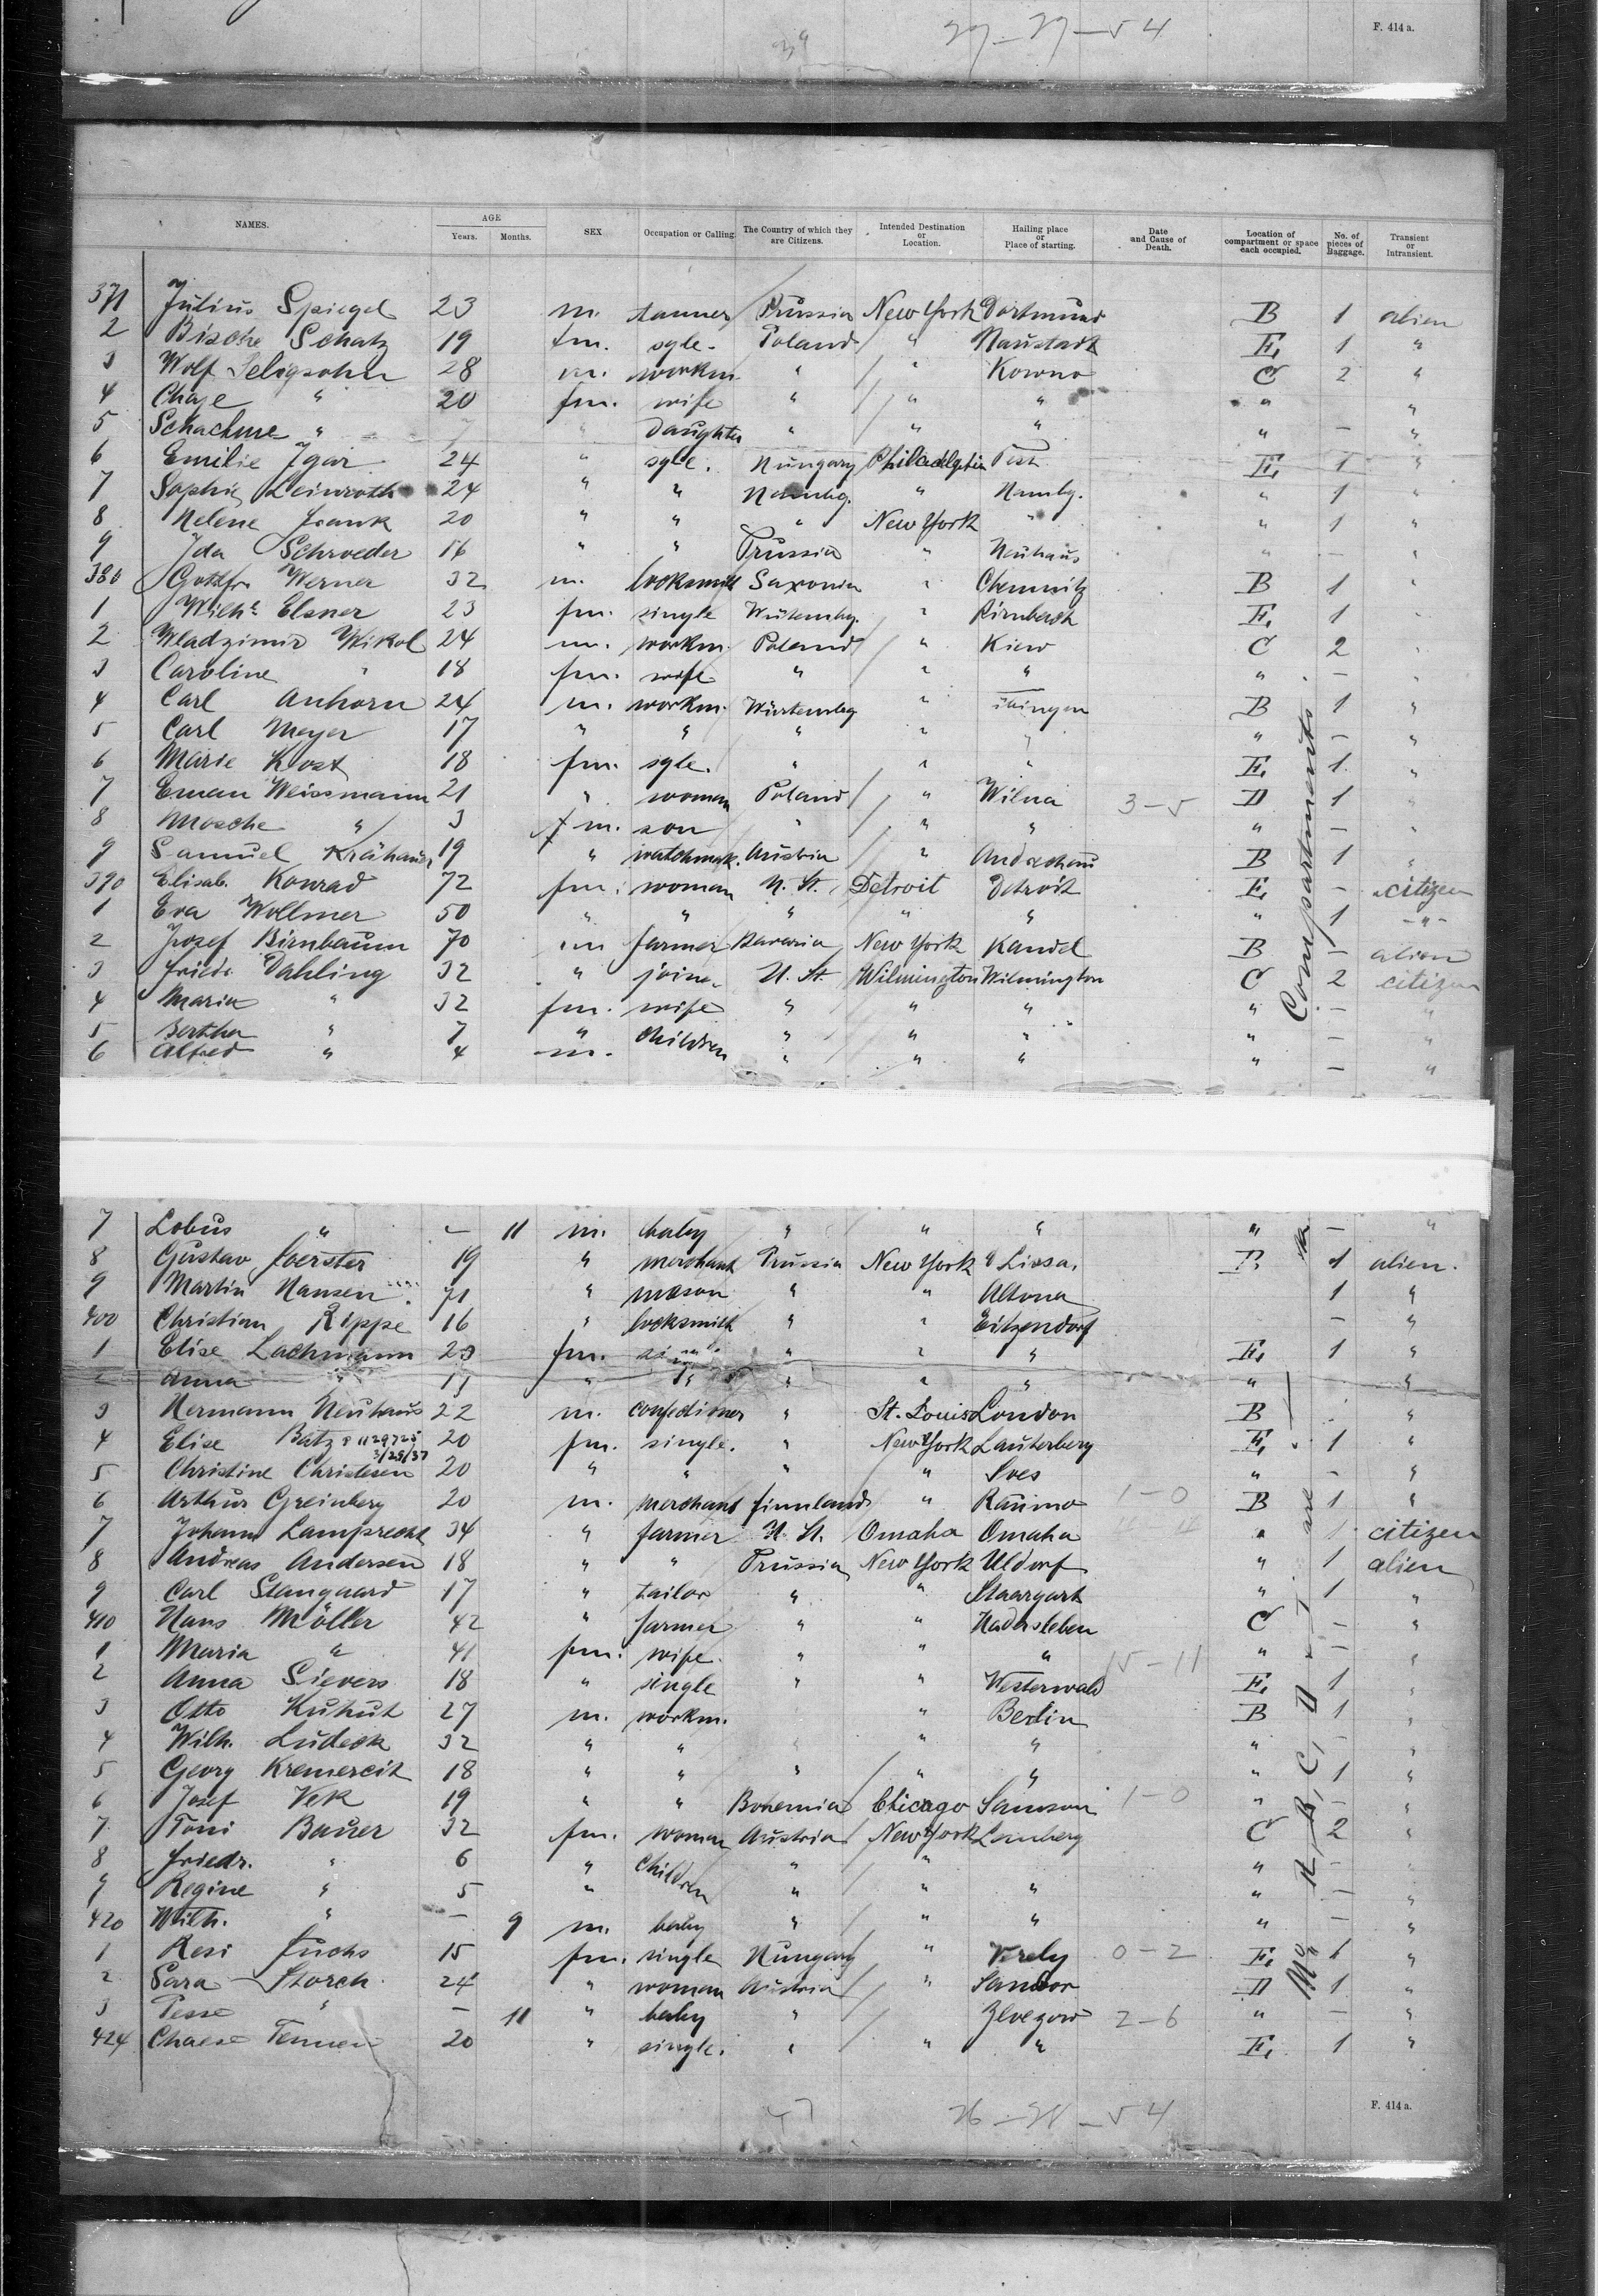 F. 414 a.
NAMES. AGE Years. Months. SEX Occupation or Calling. The Country of which they are Citizens. Intended Destination or Location. Hailing place or Place of starting. Date and Cause of Death. Location of compartment or space each occupied. No. of pieces of Baggage. Transient or Intransient.
371 Julius Spiegel 23 m. tanner Prussia New York Dortmund B 1 alien
2 Bische Schatz 19 fm. sgle. Poland " Naustadt E, 1 "
3 Wolf Seligsohn 28 m. workm. " " Kowno C 2 "
4 Chaje " 20 fm. wife " " " " "
5 Schachme " 7 " daughter " " " " — "
6 Emilie Igar 24 " sgle. Hungary Philadelphia Pest E, 1 "
7 Sophie Leinroth 24 " " Hambg. " Hambg. " 1 "
8 Helene Frank 20 " " " New York " " 1 "
9 Ida Schroeder 16 " " Prussia " Neuhaus " — "
380 Gottfr. Werner 32 m. locksmith Saxonia " Chemnitz B 1 "
1 Wilh. Elsner 23 fm. single Würtembg. " Pirnbach E, 1 "
2 Wladzimir Wikol 24 m. workm. Poland " Kiew C 2 "
3 Caroline " 18 fm. wife " " " " — "
4 Carl Anhorn 24 m. workm. Würtembg " B 1 "
5 Carl Meyer 17 " " " " " " — "
6 Marie Kost 18 fm. sgle. " " " E, 1 "
7 Eman Weissmann 21 " woman Poland " Wilna 3-5 D 1 "
8 Mosche " 3 m. son " " " " — "
9 Samuel 19 " watchmak. Austria " B 1 "
390 Elisab. Konrad 72 fm. woman U. St. Detroit Detroit E, — citizen
1 Eva Wollmer 50 " " " " " " 1 "
2 Josef Birnbaum 70 m farmer Bavaria New York Kandel B — alien
3 Friedr. Dahling 32 " joiner U. St. Wilmington Wilmington C 2 citizen
4 Maria " 32 fm. wife " " " " — "
5 Bertha " 7 " children " " " " — "
6 Alfred " 4 m. " " " " — "
7 Lobus " — 11 m. baby " " " " — "
8 Gustav Foerster 19 " merchant Prussia New York Lissa. B 1 alien.
9 Martin Hansen 71 " mason " " Altona 1 "
400 Christian Rippe 16 " locksmith " " Eitzendorf — "
1 Elise Lachmann 23 fm. " " " E, 1 "
2 Anna " " " " " " " "
3 Hermann Neuhaus 22 m. confectioner " St. Louis London B "
4 Elise Batz 1129725 3/25/37 20 fm. single. " New York Lauterberg E, 1 "
5 Christine Christesen 20 " " " " " - "
6 Arthur Greinberg 20 m. merchant Finnland " Raumo 1-0 B 1 "
7 Johann Lamprecht 34 " farmer U. St. Omaha Omaha " 1 citizen
8 Andreas Andersen 18 " " Prussia New York Uldorf " 1 alien
9 Carl Stangaard 17 " tailor " " Staargart " 1 "
410 Hans Möller 42 " farmer " " Hadersleben C — "
1 Maria " 41 fm. wife. " " " 15-11 " — "
2 Anna Sievers 18 " single " " Westerwald E, 1 "
3 Otto Kuhut 27 m. workm. " Berlin B 1 "
4 Wilh. Ludeck 32 " " " " " " - "
5 Georg Kremercit 18 " " " " " " 1 "
6 Josef Vek 19 " " Bohemia Chicago Samson 1-0 " - "
7 Toni Bauer 32 fm. woman Austria New York Lemberg C 2 "
8 Friedr. " 6 " children " " " — "
9 Regine " 5 " " " " " — "
420 Wilh. " — 9 m. baby " " " " — "
1 Resi Fuchs 15 fm. single Hungary " Verely 0-2 E, 1 "
2 Sara Storch 24 " woman Austria " Sandor D 1 "
3 Pesse " — 11 " baby " Zlvegow 2-6 " — "
424 Chaese Tennen 20 " single. " " " E, 1 "
Compartments
F. 414 a.